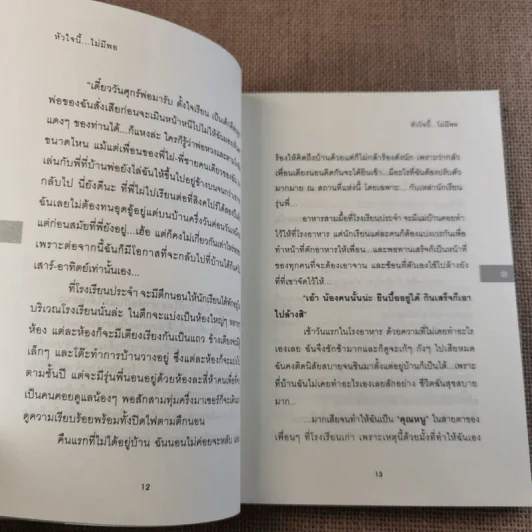 หัวใจนี้...ไม่มีพอ
"เดี๋ยววันศุกร์พ่อมารับ ตั้งใจเรียน เป็นเด็กดี
พ่อของฉันสั่งเสียก่อนจะเมินหน้าหนีไปไม่ให้ฉัน
แดงๆ ของท่านได้...ก็แหงล่ะ ใครก็รู้ว่าพ่อหวง
ขนาดไหน แม้แต่เพื่อนของพี่ไผ่-พี่ชายคนเดียวของ
เล่นกับพี่ที่บ้านพ่อยังไล่ฉันให้ขึ้นไปอยู่ข้างบนจนกว่า
กลับไป นี่ยังดีนะ ที่พี่ไม่ไปเรียนต่อที่สิงคโปร์
ฉันเลยไม่ต้องทนอุดอู้อยู่แต่บนบ้านครึ่งวันค่อนวัน
แต่ก่อนสมัยที่พี่ยังอยู่...เฮ้อ แต่ก็คงไม่เกี่ยวกัน
เพราะต่อจากนี้ฉันก็มีโอกาสที่จะกลับไปที่บ้านได้
เสาร์-อาทิตย์เท่านั้นเอง...
ที่โรงเรียนประจำ จะมีตึกนอนให้นักเรียนได้พัก
บริเวณโรงเรียนนั่นล่ะ ในตึกจะแบ่งเป็นห้องใหญ่ๆ
ห้อง แต่ละห้องก็จะมีเตียงเรียงกันเป็นแถว ข้างเตียง
เล็กๆ และโต๊ะทำการบ้านวางอยู่ ซึ่งแต่ละห้องก็จะแบ่ง
ตามชั้นปี แต่จะมีรุ่นพี่นอนอยู่ด้วยห้องละสี่ห้าคนเพื่อ
เป็นคนคอยดูแลน้องๆ พอสักสามทุ่มครึ่งมาเซอร์ก็จะเดิน
ดูความเรียบร้อยพร้อมทั้งปิดไฟตามตึกนอน
คืนแรกที่ไม่ได้อยู่บ้าน ฉันนอนไม่ค่อยจะหลับ
12
หัวใจนี้...ไม่มีพอ
ร้องไห้คิดถึงบ้านด้วยแต่ก็ไม่กล้าร้องดังนัก เพราะว่ากลัว
เพื่อนเตียงนอนติดกันจะได้ยินเข้า...มีอะไรที่ฉันต้องปรับตัว
มากมาย ณ สถานที่แห่งนี้ โดยเฉพาะ... กับเหล่านักเรียน
รุ่นพี่...
อาหารสามมื้อที่โรงเรียนประจำ จะมีแม่บ้านคอยทำ
ไว้ให้ที่โรงอาหาร แต่นักเรียนแต่ละคนก็ต้องแบ่งเวรกันเพื่อ
ทำหน้าที่ตักอาหารให้เพื่อน...และพอทานเสร็จก็เป็นหน้าที่
ของทุกคนที่จะต้องเอาจาน และช้อนที่ตัวเองใช้ไปล้างยัง
ที่ที่เขาจัดไว้ให้...
"เอ้า น้องคนนั้นน่ะ ยืนบื้ออยู่ได้ กินเสร็จก็เอา
ไปล้างสิ"
เช้าวันแรกในโรงอาหาร ด้วยความที่ไม่เคยทำอะไร
เองเลย ฉันจึงชักช้ามากและก็ดูจะเก้ๆ กังๆ ไปเสียหมด
ฉันคงติดนิสัยสบายจนชินมาตั้งแต่อยู่บ้านก็เป็นได้...เพราะ
ที่บ้านฉันไม่เคยทำอะไรเองเลยสักอย่าง ชีวิตฉันสุขสบาย
มาก...
...มากเสียจนทำให้ฉันเป็น "คุณหนู" ในสายตาของ
เพื่อนๆ ที่โรงเรียนเก่า เพราะเหตุนี้ด้วยมั้งที่ทำให้ฉันเอง
13